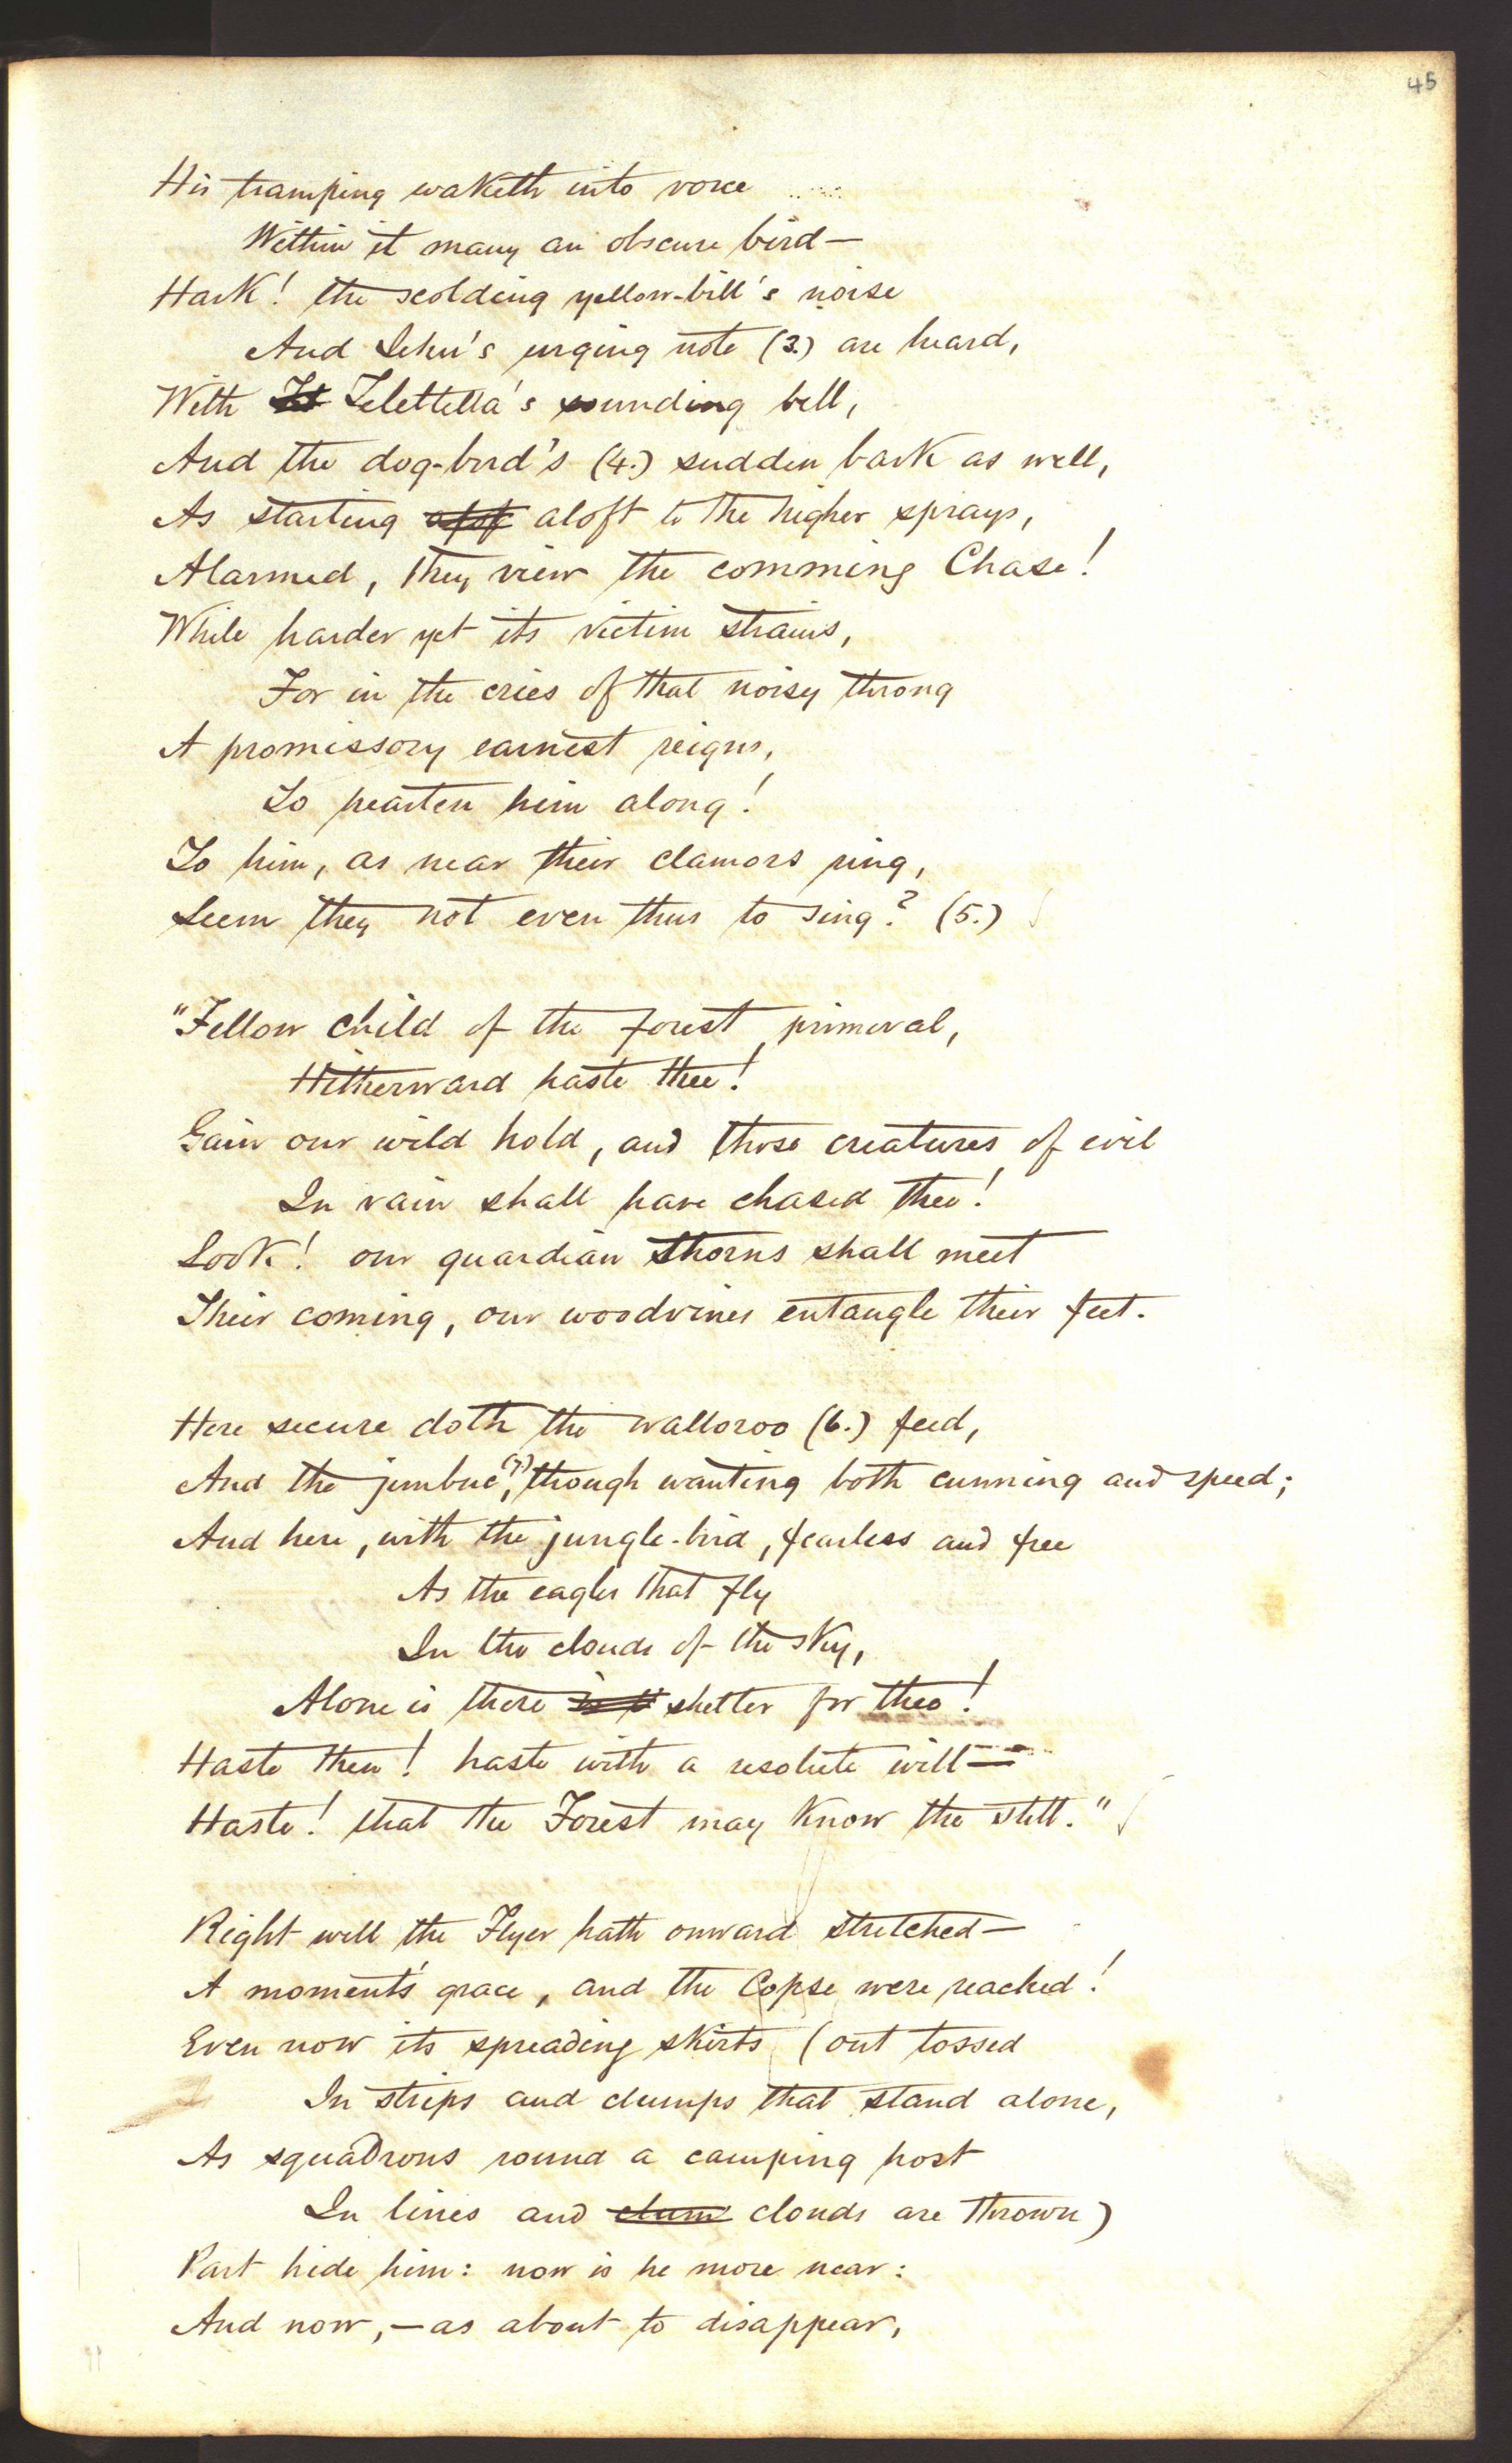 45
His tramping waketh into voice
Within it many an obscure bird—
Hark! the scolding yellow-bill's noise
And Jehu's urging note (3.) are heard,
With Telettella's sounding bell,
And the dog-bird's (4.) sudden bark as well,
As starting aloft to the higher sprays,
Alarmed, they view the comming Chase!
While harder yet its victim strains,
For in the cries of that noisy throng
A promissory earnest reigns,
To hearten him along!
To him, as near their clamors ring,
Seem they not even thus to sing? (5.)
"Fellow child of the forest primeval,
Hitherward haste thee!
Gain our wild hold, and those creatures of evil
In vain shall have chased thee!
Look! our guardian thorns shall meet
Their coming, our woodvines entangle their feet.
Here secure doth the walloroo (6.) feed,
And the jumbuc (7.), though wanting both cunning and speed;
And here, with the jungle-bird, fearless and free
As the eagles that fly
In the clouds of the sky,
Alone is there shelter for thee!
Haste then! haste with a resolute will—
Haste! that the Forest may know the still."
Right well the Flyer hath onward stretched—
A moment's grace, and the Copse were reached!
Even now its spreading skirts (out tossed
In strips and clumps that stand alone,
As squadrons round a camping host
In lines and clum clouds are thrown)
Part hide him: now is he more near:
And now,—as about to disappear,